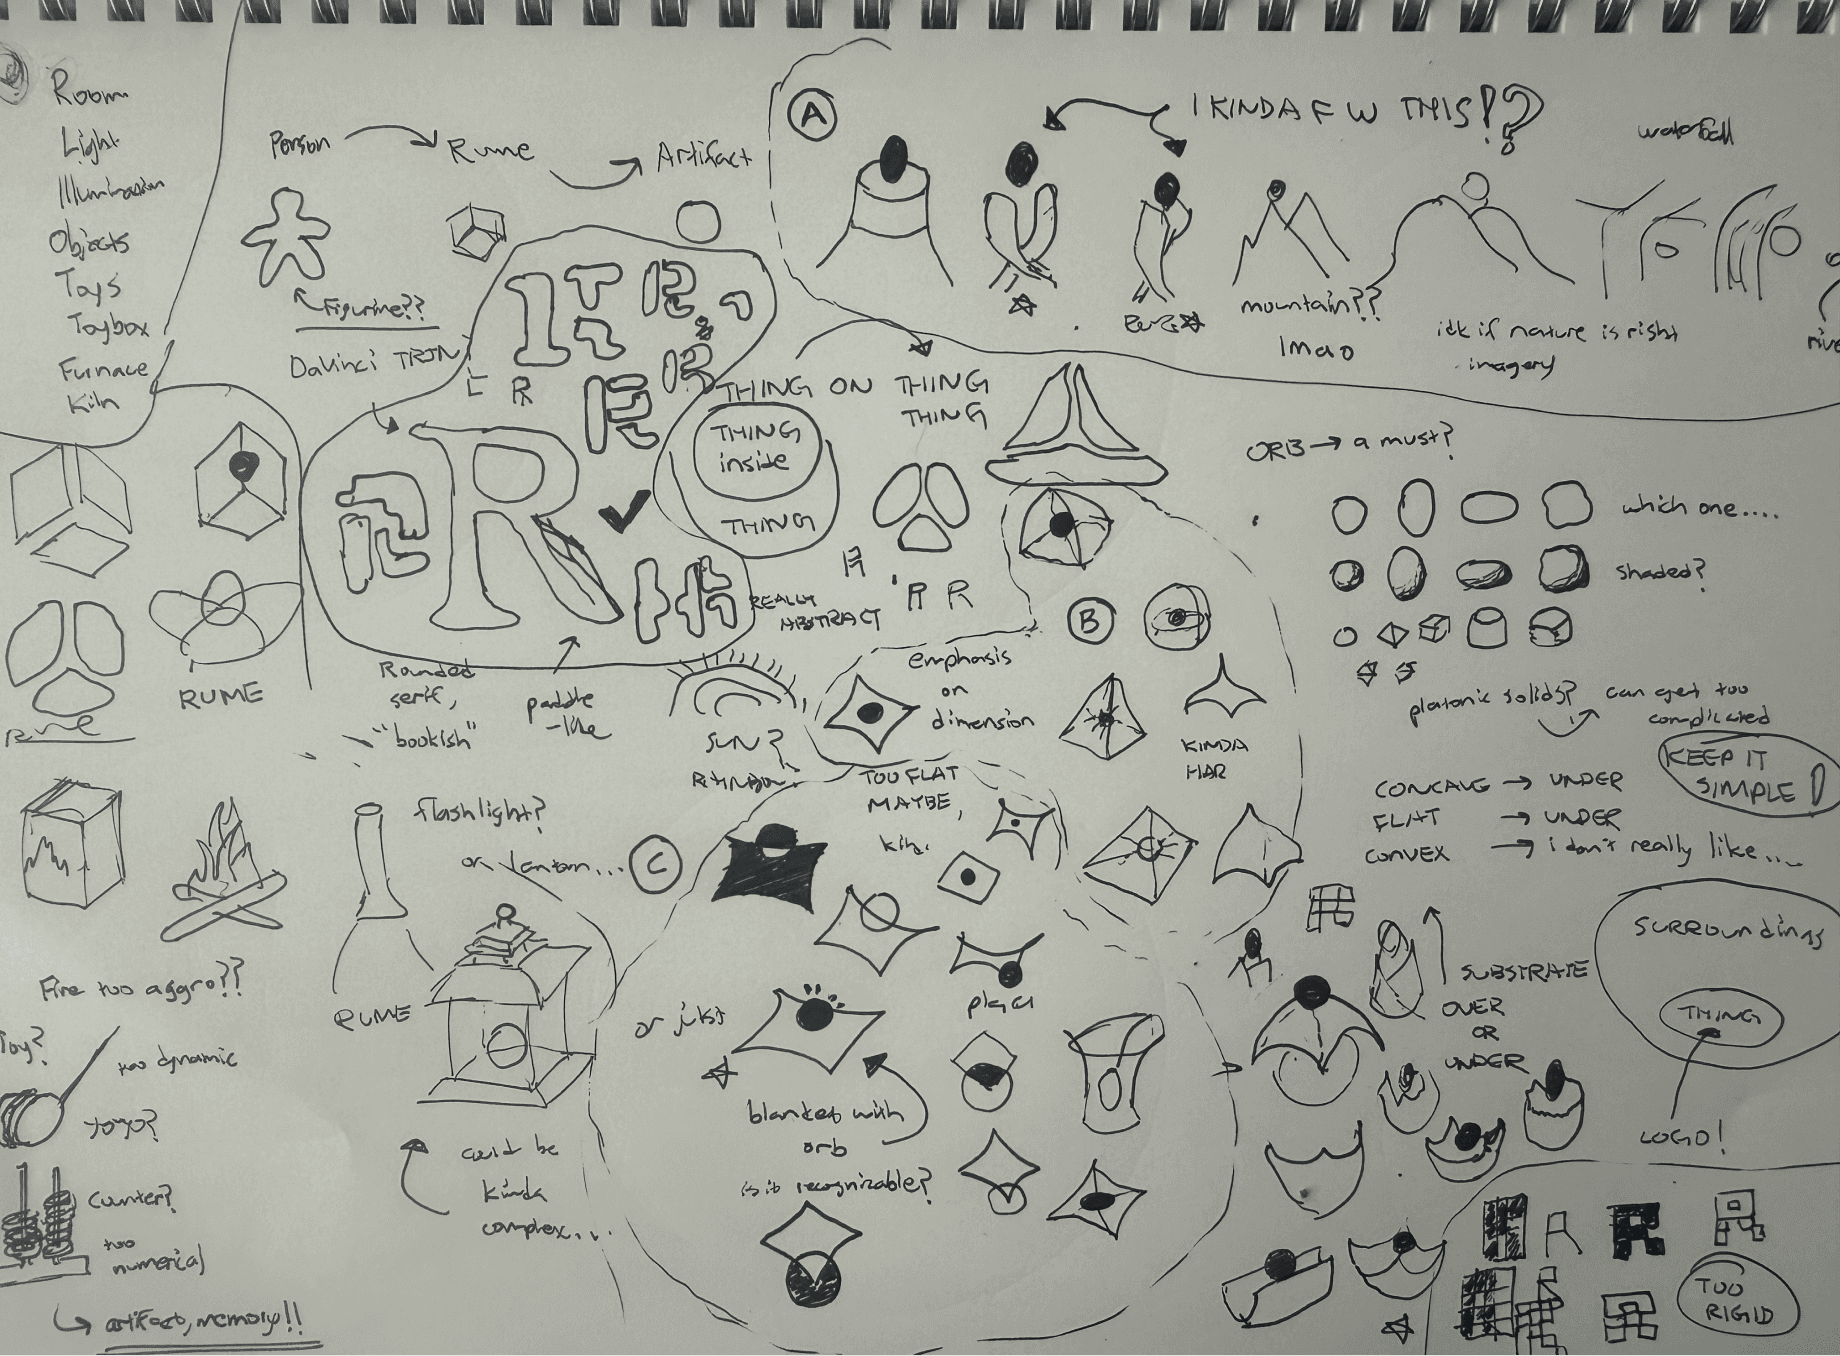 Room
Light
Illumination
Objects
Toys
Toybox
Furnace
Kiln
Person
Rume
Artifact
Figurine??
DaVinci
R
A
I KINDA F W THIS!?
waterfall
mountain??
lmao
idk if nature is right
imagery
THING ON THING
THING
THING
inside
THING
R
REALLY
ABSTRACT
R R
Rounded
serif,
"bookish"
paddle
-like
RUME
Rume
SUN?
B
emphasis
on
dimension
KINDA
HAR
TOO FLAT
MAYBE,
ORB → a must?
which one....
shaded?
platonic solids?
can get too
complicated
KEEP IT
SIMPLE!
CONCAVE → UNDER
FLAT → UNDER
CONVEX → i don't really like...
flashlight?
or lantern...
C
Fire too aggro??
RUME
Toy?
too dynamic
yoyo?
counter?
too
numerical
artifact, memory!!
could be
kinda
complex....
or just
blanket with
orb
is it recognizable?
SUBSTRATE
OVER
OR
UNDER
SURROUNDINGS
THING
LOGO!
R
R
R
TOO
RIGID